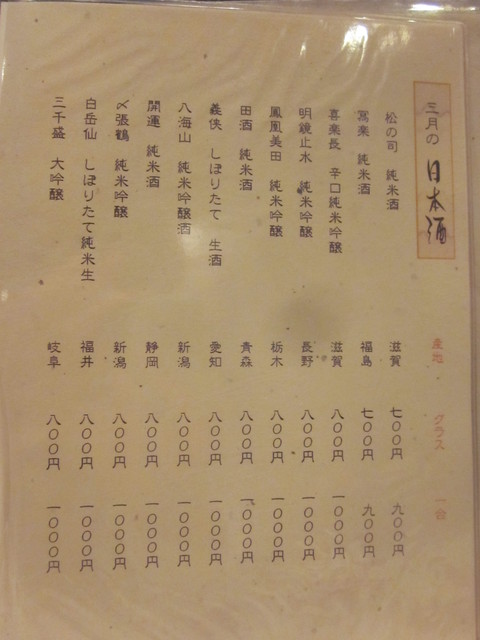 三月の 日本酒 産地 グラス 一合
松の司 純米酒 滋賀 七〇〇円 九〇〇円
寫楽 純米酒 福島 七〇〇円 九〇〇円
喜楽長 辛口純米吟醸 滋賀 八〇〇円 一〇〇〇円
明鏡止水 純米吟醸 長野 八〇〇円 一〇〇〇円
鳳凰美田 純米吟醸 栃木 八〇〇円 一〇〇〇円
田酒 純米酒 青森 八〇〇円 一〇〇〇円
義侠 しぼりたて 生酒 愛知 八〇〇円 一〇〇〇円
八海山 純米吟醸酒 新潟 八〇〇円 一〇〇〇円
開運 純米酒 静岡 八〇〇円 一〇〇〇円
〆張鶴 純米吟醸 新潟 八〇〇円 一〇〇〇円
白岳仙 しぼりたて純米生 福井 八〇〇円 一〇〇〇円
三千盛 大吟醸 岐阜 八〇〇円 一〇〇〇円